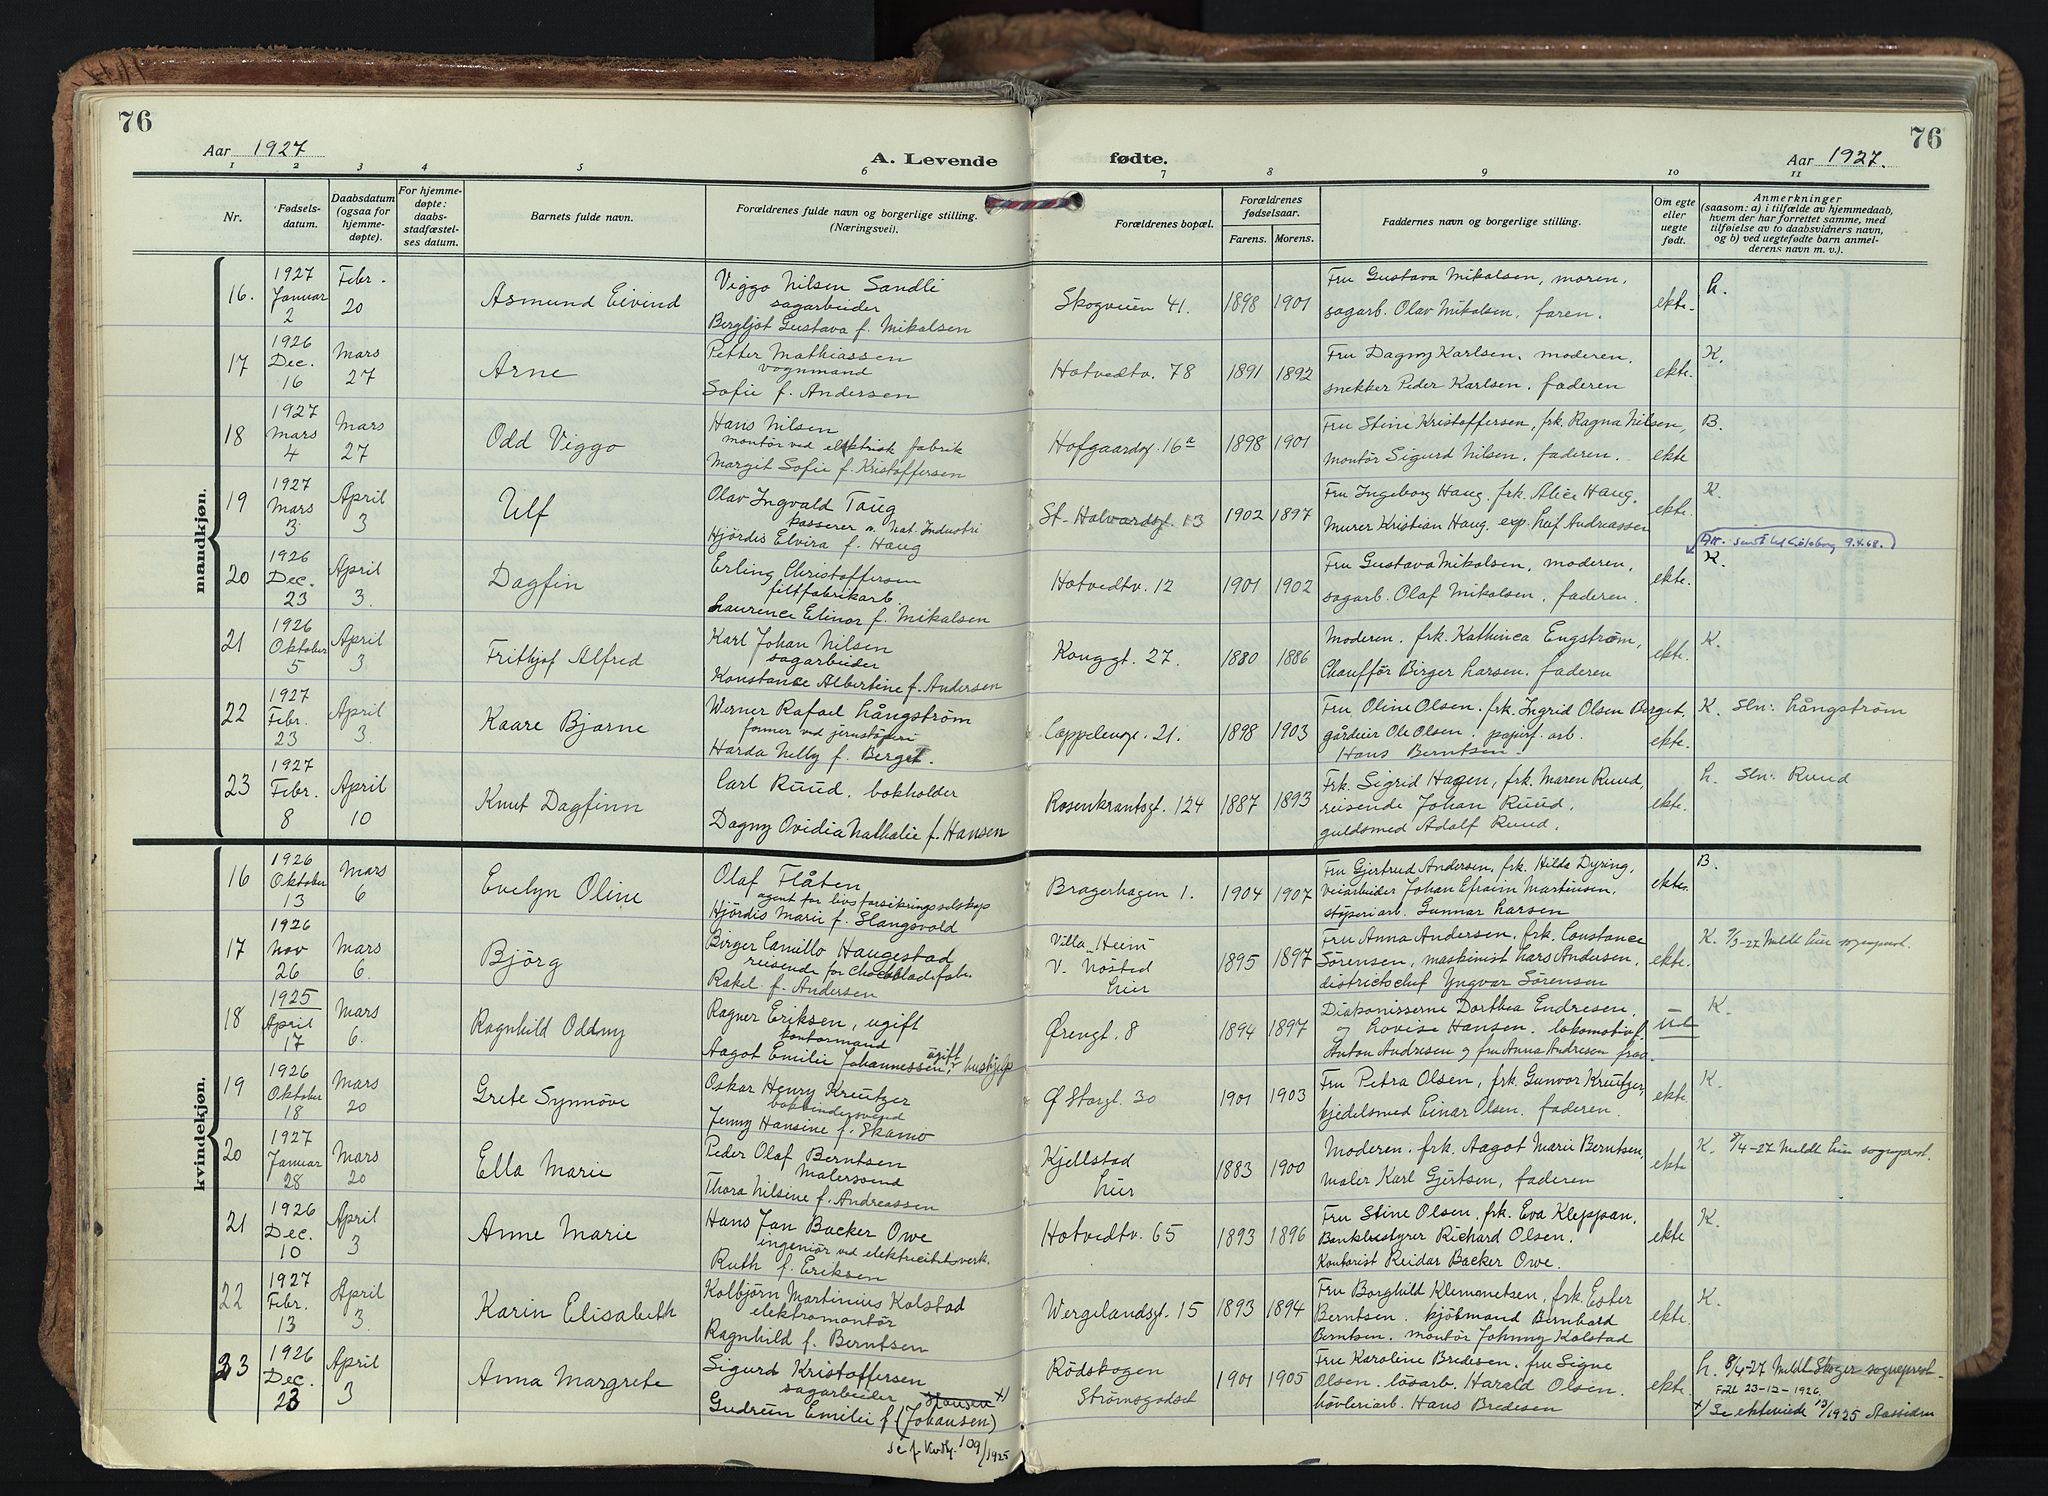 76
76
Aar 1927
A. Levende
fødte.
Aar 1927.
1 2 3 4 5 6 7 8 9 10 11
Nr.
Fødselsdatum.
Daabsdatum (ogsaa for hjemmedøpte).
For hjemmedøpte: daabsstadfæstelses datum.
Barnets fulde navn.
Forældrenes fulde navn og borgerlige stilling. (Næringsvei).
Forældrenes bopæl.
Forældrenes fødselsaar.
Farens. Morens.
Faddernes navn og borgerlige stilling.
Om egte eller uegte født.
Anmerkninger
(saasom: a) i tilfælde av hjemmedaab, hvem der har forrettet samme, med tilføielse av to daabsvidners navn, og b) ved uegtefødte barn anmelderens navn m. v.).
mandkjøn.
16. 1927 Januar 2 Febr. 20 Asmund Eivind
Viggo Nilsen Sandli
sagarbeider
Bergljot Gustava f. Mikalsen
Skogveien 41. 1898 1901
Fru Gustava Mikalsen, moren,
sagarb. Olav Mikalsen, faren.
ekte. L.
17 1926 Dec. 16 Mars 27 Arne
Petter Mathiassen
vognmand
Sofie f. Andersen
Hotvedtv. 78 1891 1892
Fru Dagny Karlsen, moderen,
snekker Peder Karlsen, faderen
ekte. K.
18 1927 Mars 4 Mars 27 Odd Viggo
Hans Nilsen
montör ved elektrisk fabrik
Margit Sofie f. Kristoffersen
Hofgaardsg. 16a 1898 1901
Fru Stine Kristoffersen, frk. Ragna Nilsen,
montör Sigurd Nilsen, faderen.
ekte B.
19 1927 Mars 3 April 3 Ulf
Olav Ingvald Taug
kasserer v. Nat. Industri
Hjördis Elvira f. Haug
St. Halvardsgt. 13 1902 1897
Fru Ingeborg Haug, frk. Alice Haug,
Murer Kristian Haug, exp. Leif Andreassen
ekte. K.
Att. sendt til Göteborg 9.4.68.
20 1926 Dec. 23 April 3. Dagfin
Erling Christoffersen
filtfabrikarb.
Laurence Elinor f. Mikalsen
Hotvedtv. 12 1901 1902
Fru Gustava Mikalsen, moderen,
sagarb. Olaf Mikalsen, faderen.
ekte. K.
21 1926 Oktober 5 April 3 Frithjof Alfred
Karl Johan Nilsen
sagarbeider
Konstance Albertine f. Andersen
Konggt. 27. 1880 1886
Moderen, frk. Kathinca Engström,
Chaufför Birger Larsen, faderen
ekte. K.
22 1927 Febr. 23 April 3. Kaare Bjarne
Werner Rafael Långström
former ved jernstøperi
Harda Nelly f. Berget.
Cappelensgt. 21. 1898 1903
Fru Oline Olsen, frk. Ingrid Olsen Berget,
gårdeier Ole Olsen, papirf. arb.
Hans Berntsen.
ekte. K. Sln: Långström
23 1927 Febr. 8 April 10 Knut Dagfinn
Carl Ruud, bokholder
Dagny Ovidia Nathalie f. Hansen
Rosenkrantsgt. 124 1887 1893
Frk. Sigrid Hagen, frk. Maren Ruud,
reisende Johan Ruud,
guldsmed Adolf Ruud.
ekte. L. Sln: Ruud
kvindekjøn.
16 1926 Oktober 13 Mars 6 Evelyn Oline
Olaf Flåten
agent for livsforsikringsselskap
Hjördis Marie f. Slangsvold
Bragerhagen 1. 1904 1907
Fru Gjertrud Andersen, frk. Hilda Dyring,
veiarbeider Johan Efraim Martinsen,
støperiarb. Gunnar Larsen
ekte. B.
17 1926 Nov 26 Mars 6. Björg
Birger Camillo Haugestad
reisende for chocoladefabr.
Rakel f. Andersen
Villa Heim
v. Nösted
Lier
1895 1897
Fru Anna Andersen, frk. Constance
Sörensen, maskinist Lars Andersen,
districtschef Yngvar Sörensen
ekte. K. 7/3-27 Meldt Lier sogneprest.
18 1925 April 17 Mars 6. Ragnhild Oddny
Ragner Eriksen, ugift
kontormand
Aagot Emilie Johannessen, ugift hushjelp
Ørengt. 8 1894 1897
Diakonisserne Dorthea Endresen,
og Lovise Hansen, lokomotivf.
Anton Andresen og fru Anna Andresen
K.
19 1926 Oktober 18 Mars 20 Grete Synnöve
Oskar Henry Kreutzer
bokbindersvend
Jenny Hansine f. Skamo
Ø Storgt. 30 1901 1903
Fru Petra Olsen, frk. Gunvor Kreutzer,
kjedelsmed Einar Olsen, faderen.
ekte. K.
20 1927 Januar 28 Mars 20 Ella Marie
Peder Olaf Berntsen
Malersvend
Thora Nilsine f. Andreassen
Kjellstad
Lier
1883 1900
Moderen, frk. Aagot Marie Berntsen,
maler Karl Gjertsen, faderen
ekte K. 8/4-27 Meldt Lier sogneprest.
21 1926 Dec. 10 April 3 Anne Marie
Hans Jan Backer Owe
ingeniör ved elektricitetsverk.
Ruth f. Eriksen
Hotvedtv. 65 1893 1896
Fru Stine Olsen, frk. Eva Kleppan,
Bankbestyrer Richard Olsen,
Kontorist Reidar Backer Owe.
ekte K.
22 1927 Febr. 13 April 3. Karin Elisabeth
Kolbjörn Martinius Kolstad
elektromontör
Ragnhild f. Berntsen
Wergelandsgt. 15 1893 1894
Fru Borghild Klemmetsen, frk. Ester
Berntsen, kjötmand Bernhard
Berntsen, montör Johnny Kolstad
ekte. K.
23 1926 Dec. 23 April 3 Anna Margrete
Sigurd Kristoffersen
sagarbeider Hansen x)
Gudrun Emilie f. (Johansen)
se f. 109/1925
Rödskogen
Strömsgodset
1901 1905
Fru Karoline Bredesen, fru Signe
Olsen, lösarb. Harald Olsen,
hövleriarb. Hans Bredesen
ekte. L. 8/4-27 Meldt Skoger sogneprest.
Født 23-12-1926.
x) Se ekteviede 13/1925